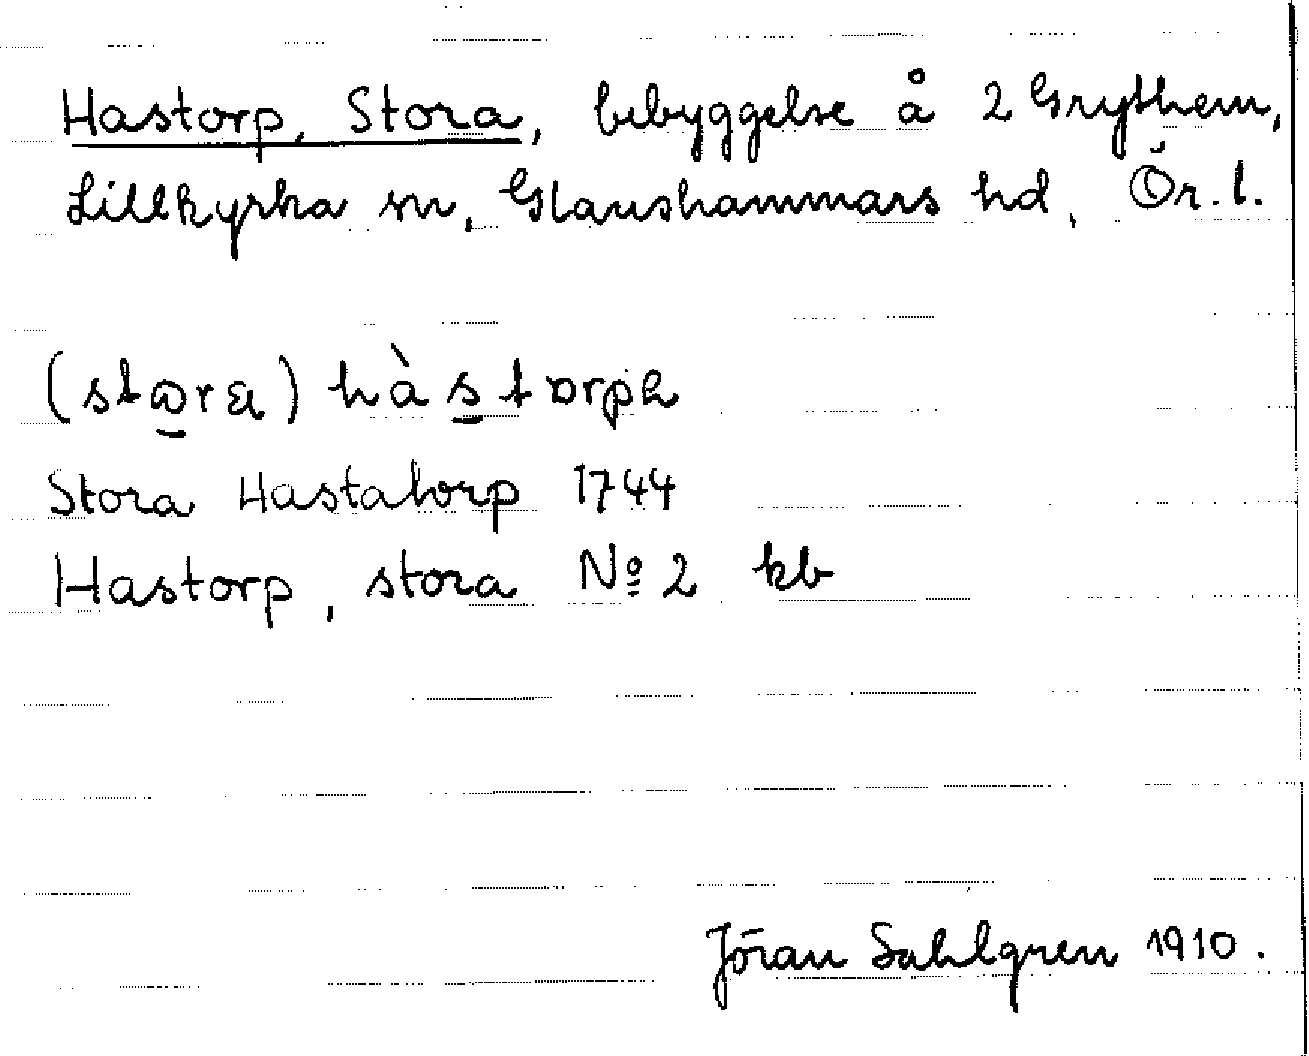 Hastorp, Stora, bebyggelse å 2 Grythem,
Lillkyrka sn, Glanshammars hd, Ör. l.
(stora) hàstorp
Stora Hastatorp 1744
Hastorp, stora Nº 2 kb
Jöran Sahlgren 1910.